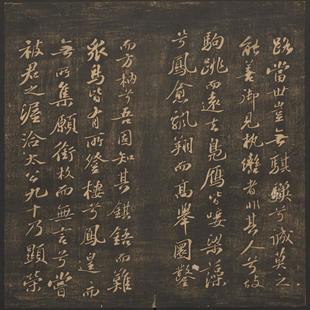 路當世豈无騏驥兮誠莫之
能善御見執轡者非其人兮故
駒跳而遠去鳧鴈唼梁藻
兮鳳愈飄翔而高舉圜鑿
而方枘兮吾固知其鉏鋙而難
衆鳥皆有所登棲兮鳳遑而
无所集願銜枚而無言兮嘗
被君之渥洽太公九十乃顯榮